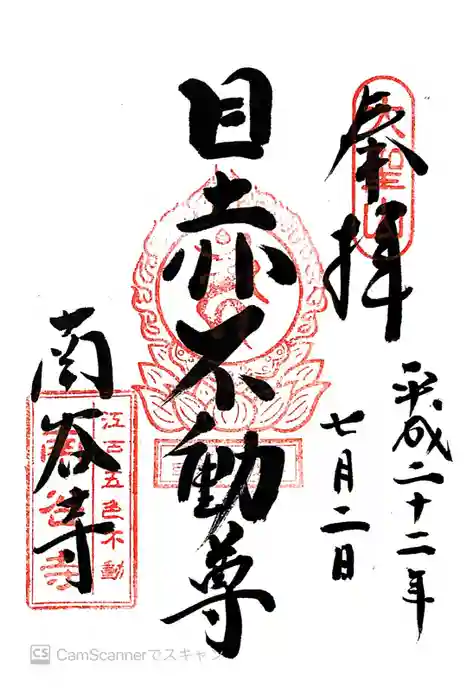 奉拝
大聖山
平成二十二年
七月二日
目赤不動尊
江戸五色不動
南谷寺
南谷寺
CS CamScannerでスキャン